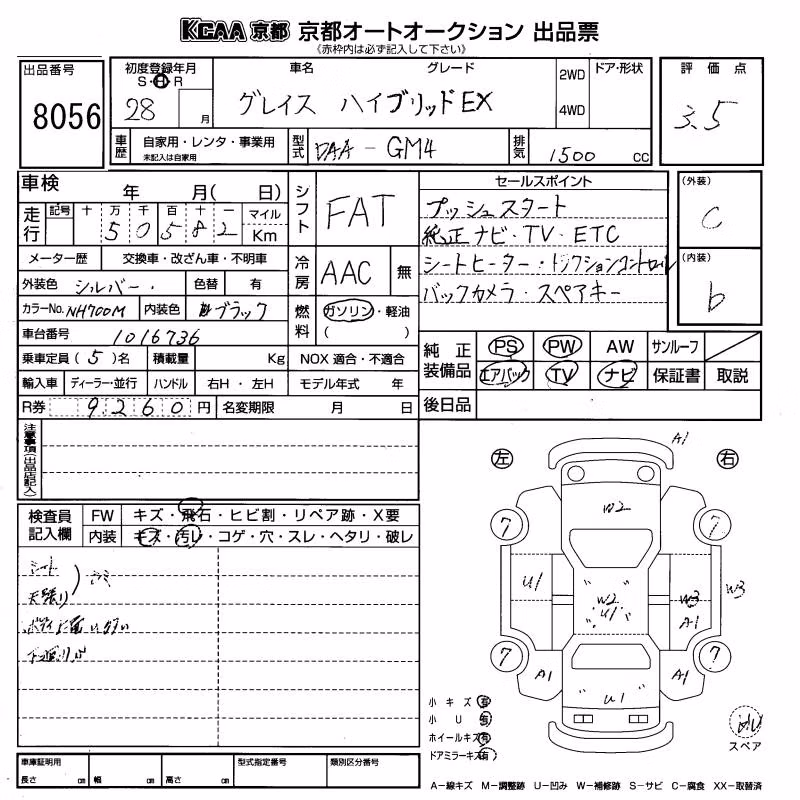 KCAA 京都 京都オートオークション 出品票
《赤枠内は必ず記入して下さい》
出品番号
8056
初度登録年月
S・H・R
28 月
車名 グレード
グレイス ハイブリッドEX
2WD
4WD
ドア・形状
評価点
3.5
車歴
自家用・レンタ・事業用
未記入は自家用
型式
DAA - GM4
排気
1500 cc
車検 年 月( 日)
走行
記号 十 万 千 百 十 一
5 0 5 8 2
マイル
Km
メーター歴 交換車・改ざん車・不明車
外装色 シルバー・ 色替 有
カラーNo. NH700M 内装色 ブラック
車台番号
1016736
乗車定員(5)名 積載量 Kg
輸入車 ディーラー・並行 ハンドル 右H・左H
R券 9260円 名変期限 月 日
シフト
FAT
冷房
AAC 無
燃料
ガソリン・軽油
( )
NOX 適合・不適合
モデル年式 年
セールスポイント
プッシュスタート
純正ナビ・TV・ETC
シートヒーター・トラクションコントロール
バックカメラ・スペアキー
(外装)
C
(内装)
b
純正装備品
PS PW AW サンルーフ
エアバック TV ナビ 保証書 取説
後日品
注意事項(出品店記入)
検査員記入欄
FW キズ・飛石・ヒビ割・リペア跡・X要
内装 キズ・汚レ・コゲ・穴・スレ・ヘタリ・破レ
シート
天張り
左 右
A1
7 7
W2
U1
W2
U1
W3
A1
W3
7 7
A1 A1
U1
小キズ 有
小U 有
ホイールキズ 有
ドアミラーキズ 有
スペア
A−線キズ M−調整跡 U−凹み W−補修跡 S−サビ C−腐食 XX−取替済
車庫証明用
長さ cm 幅 cm 高さ cm
型式指定番号
類別区分番号